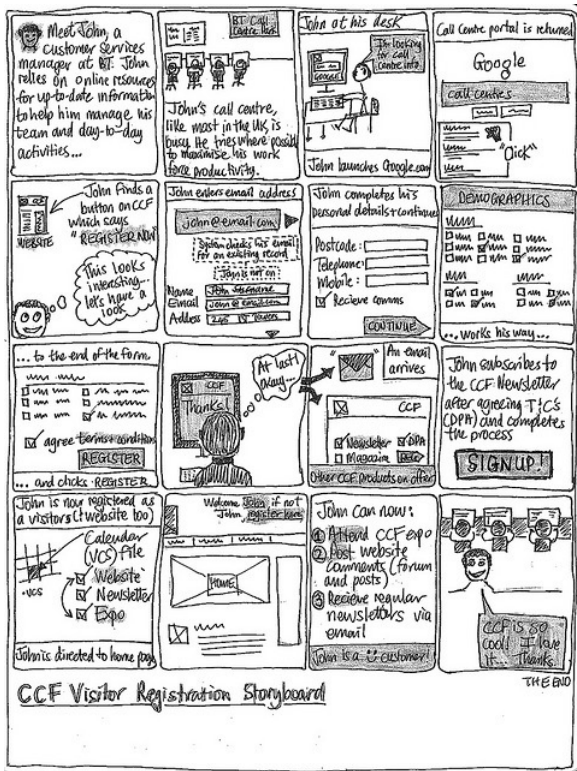 Meet John, a
customer services
manager at BT. John
relies on online resources
for up-to-date information
to help him manage his
team and day-to-day
activities...
BT Call
Centre
John's call centre,
like most in the UK, is
busy. He tries where possibly
to maximise his work
force productivity.
John at his desk
I'm looking
for call
centre info
GOOGLE
John launches Google.com
Call Centre portal is returned
Google
call centres
"Click"
WEBSITE
John finds a
button on CCF
which says
"REGISTER NOW"
This looks
interesting...
let's have a
look
John enters email address
john@email.com
System checks his email
for an existing record
John is not on
Name John Surname
Email john@email.com
Address 245
John completes his
personal details + continues
Postcode:
Telephone:
Mobile:
Recieve comms
CONTINUE
DEMOGRAPHICS
...works his way...
... to the end of the form.
agree terms + condition
REGISTER
... and clicks REGISTER
CCF
Thanks!
At last!
okay...
An email
arrives
CCF
Newsletter DPA
Magazine
Other CCF products on offer
John subscribes to
the CCF Newsletter
after agreeing T&C's
(DPA) and completes
the process
SIGNUP!
John is now registered as
a visitors (+website too)
Calendar
(VCS) file
.vcs
Website
Newsletter
Expo
John is directed to home page
Welcome John if not
John register here
HOME
John can now:
1 Attend CCF expo
2 Post website
comments (forum
and posts)
3 Recieve regular
newsletters via
email
John is a customer!
CCF is so
cool! I love
it... Thanks.
THE END
CCF Visitor Registration Storyboard